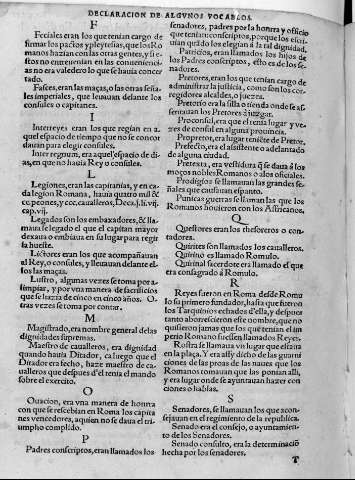 DECLARACION DE ALGVNOS VOCABLOS.
F
Feciales eran los que tenían cargo de
firmar los pactos y pleytesias, que los Ro
manos hazian con las otras gentes, y si e-
stos no entreuenian en las conuenencias
no era valedero lo que se hauia concer
tado.
Fasces, eran las maças, o las otras señales
imperiales, que leuauan delante los
consules o capitanes.
I
Interreyes eran los que regían en a-
quel espacio de tiempo que no se concor
dauan para elegir consules.
Interregnum, era aquel espacio de di-
as, en que no hauia Rey o consules.
L
Legiones, eran las capitanias, y en ca-
da legion Romana, hauia quatro mil & c
cc. peones, y ccc, caualleros, Deca.j.li.vij.
cap.vij.
Legados son los embaxadores, & lla-
maua se legado el que el capitan mayor
dexaua o embiaua en su lugar para regir
la hueste.
Lictores eran los que acompañauan
al Rey, o consules, y lleuauan delante el-
los las maças.
Lustro, algunas vezes se toma por a-
limpiar, y por vna manera de sacrificios
que se hazia de cinco en cinco años. O-
tras vezes se toma por contar.
M
Magistrado, era nombre general de las
dignidades supremas.
Maestro de caualleros, era dignidad
quando hauia Ditador, ca luego que el
Ditador era fecho, haze maestro de ca-
ualleros que despues d'el tenia el mando
sobre el exercito.
O
Ouacion, era vna manera de honrra
con que se rescebian en Roma los capita
nes vencedores, aquien no se daua el tri-
umpho complido.
P
Padres conscriptos, eran llamados los
senadores, padres por la honrra y officio
que tenian conscriptos, porque los escri-
uian quãdo los elegian a la tal dignidad.
Patricios, eran llamados los hijos de
los Padres conscriptos, esto es de los se-
nadores.
Pretores, eran los que tenian cargo de
administrar la justicia, como son los cor-
regidores alcaldes, o juezes.
Pretorio era la silla o tienda onde se as-
sentauan los Pretores a juzgar.
Proconsul, era que el tenia lugar y ve-
zes de consul en alguna prouincia.
Propretor, era lugar teniẽte de Pretor.
Prefecto, era el assistente o adelantado
de alguna ciudad.
Pretexta, era vestidura q̃ se daua a los
moços nobles Romanos o a los oficiales.
Prodigios se llamauan las grandes se-
ñales que causauan espanto.
Punicas guerras se llaman las que los
Romanos houieron con los Affricanos.
Q
Questores eran los thesoreros o con-
tadores.
Quirites son llamados los caualleros.
Quirino es llamado Romulo.
Quirinal sacerdote era llamado el que
era consagrado a Romulo.
R
Reyes fueron en Roma desde Romu
lo su primero fundador, hasta que fueron
los Tarquinios echados d'ella, y despues
tanto aborrescieron este nombre, que no
quisieron jamas que los que tenian el im
perio Romano fuessen llamados Reyes.
Rostra se llamaua vn lugar que estaua
en la plaça. Y era assy dicho de las guarni
ciones de las proas de las naues que los
Romanos tomaron que las ponian alli,
y era lugar onde se ayuntauan hazer con
ciones o hablas.
S
Senadores, se llamauan los que acon-
sejauan en el regimiento de la republica.
Senado era el consejo, o ayuntamien-
to de los Senadores.
Senado consulto, era la determinaciõ
hecha por los senadores.
T